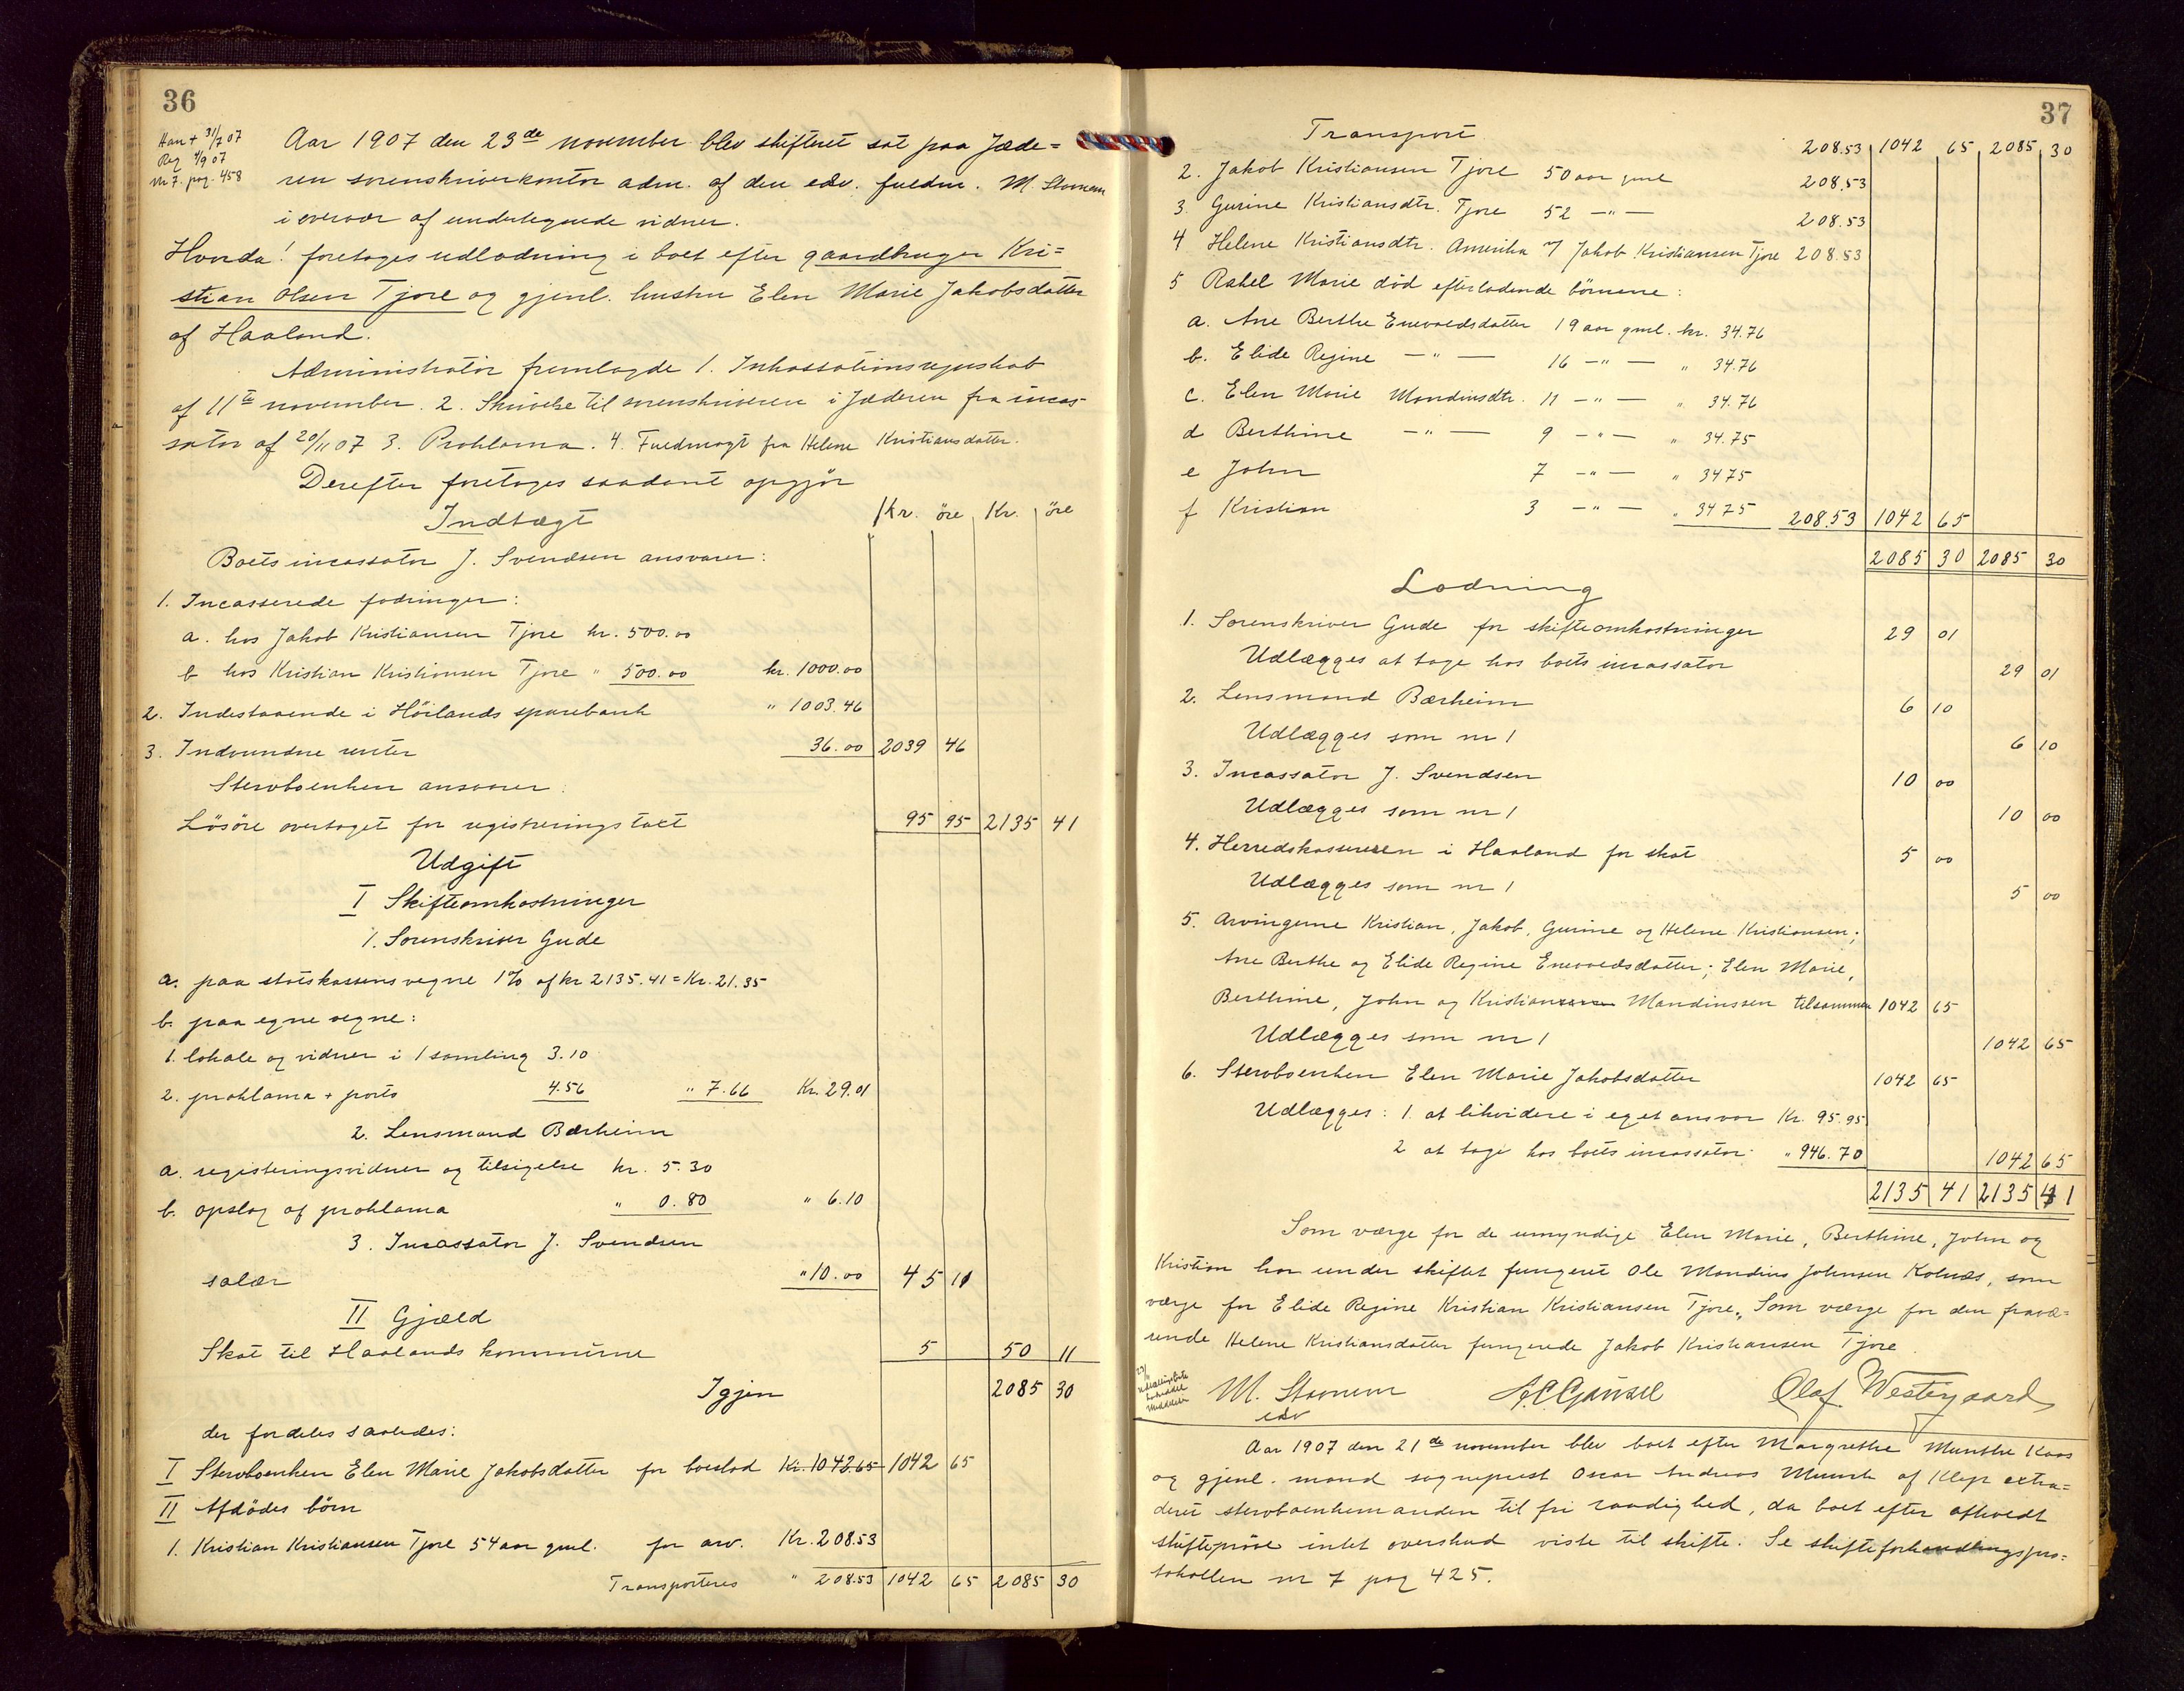 36
Han + 31/7 07
Reg 4/9 07
nr 7. pag. 458
Aar 1907 den 23de november blev skifteret sat paa Jæde=
ren sorenskriverkontor adm. af den edv. fuldm. M. Stornem
i overvær af undertegnede vidner.
Hvorda! foretages udlodning i boet efter gaardbruger Kri=
stian Olsen Tjore og gjenl. hustru Elen Marie Jakobsdatter
af Haaland.
Administrator fremlagde 1. Inkassationsregnskab
af 11te november. 2. Skrivelse til sorenskriveren i Jæderen fra incas-
sator af 20/11 07 3. Proklama. 4. Fuldmagt fra Helene Kristiansdatter.
Derefter foretages saadant opgjør
Indtægt Kr. öre Kr. öre
Boets incassator J. Svendsen ansvarer:
1. Incasserede fodringer:
a. hos Jakob Kristiansen Tjore kr. 500.00
b hos Kristian Kristiansen Tjore " 500.00 kr. 1000.00
2. Indestaaende i Höilands sparebank " 1003.46
3. Indvundne renter 36.00 2039 46
Stervboenken ansvarer:
Lösöre overtaget for registreringstaxt 95 95 2135 41
Udgift
I Skifteomkostninger
1. Sorenskriver Gude
a. paa statskassens vegne 1% af kr 2135.41 = Kr. 21.35
b. paa egne vegne:
1. lokale og vidner i 1 samling 3.10
2. proklama + porto 4.56 " 7.66 Kr. 29.01
2. Lensmand Bærheim
a. registreringsvidner og tilsigelse kr. 5.30
b. opslag af proklama " 0.80 " 6.10
3. Incassator J. Svendsen
salær " 10.00 45 11
II Gjæld
Skat til Haalands kommune 5 50 11
Igjen 2085 30
der fordeles saaledes:
I Stervboenken Elen Marie Jakobsdatter for boeslod Kr. 1042.65 1042 65
II Afdödes börn
1. Kristian Kristiansen Tjore 54 aar gml. for arv. Kr. 208.53
Transporteres " 208.53 1042 65 2085 30
37
Transport 208.53 1042 65 2085 30
2. Jakob Kristiansen Tjore 50 aar gml 208.53
3. Gurine Kristiansdtr. Tjore 52 — " — 208.53
4 Helene Kristiansdtr. Amerika v/ Jakob Kristiansen Tjore 208.53
5 Rakel Marie död efterladende börnene:
a. Ane Berthe Enevoldsdatter 19 aar gml. kr. 34.76
b. Elide Regine — " — 16 — " — " 34.76
c. Elen Marie Mandiusdtr. 11 — " — " 34.76
d Berthine — " — 9 — " — " 34.75
e John 7 — " — " 34 75
f Kristian 3 — " — " 34 75 208.53 1042 65
2085 30 2085 30
Lodning
1. Sorenskriver Gude for skifteomkostninger 29 01
Udlægges at tage hos boets incassator 29 01
2. Lensmand Bærheim 6 10
Udlægges som nr 1 6 10
3. Incassator J. Svendsen 10 00
Udlægges som nr 1 10 00
4. Herredskassereren i Haaland for skat 5 00
Udlægges som nr 1 5 00
5. Arvingerne Kristian, Jakob, Gurine og Helene Kristiansen;
Ane Berthe og Elide Regine Enevoldsdatter; Elen Marie,
Berthine, John og Kristian Mandiussen tilsammen 1042 65
Udlægges som nr 1 1042 65
6. Stervboenken Elen Marie Jakobsdatter 1042 65
Udlægges: 1. at likvidere i eget ansvar Kr. 95.95
2 at tage hos boets incassator " 946.70 1042 65
2135 41 2135 41
Som værge for de umyndige Elen Marie, Berthine, John og
Kristian har under skiftet fungeret Ole Mandius Johnsen Kolnæs, som
værge for Elide Regine Kristian Kristiansen Tjore. Som værge for den fravæ=
rende Helene Kristiansdatter fungerede Jakob Kristiansen Tjore
M. Stornem Olaf Westergaard
edv
Aar 1907 den 21de november blev boet efter Margrethe Munthe Kaas
og gjenl. mand sogneprest Oscar Andreas Munthe af Klep extra=
deret stervboenkemanden til fri raadighed, da boet efter afholdt
skifteprøve intet overskud viste til skifte. Se skifteforhandlingspro=
tokollen nr 7 pag 425.